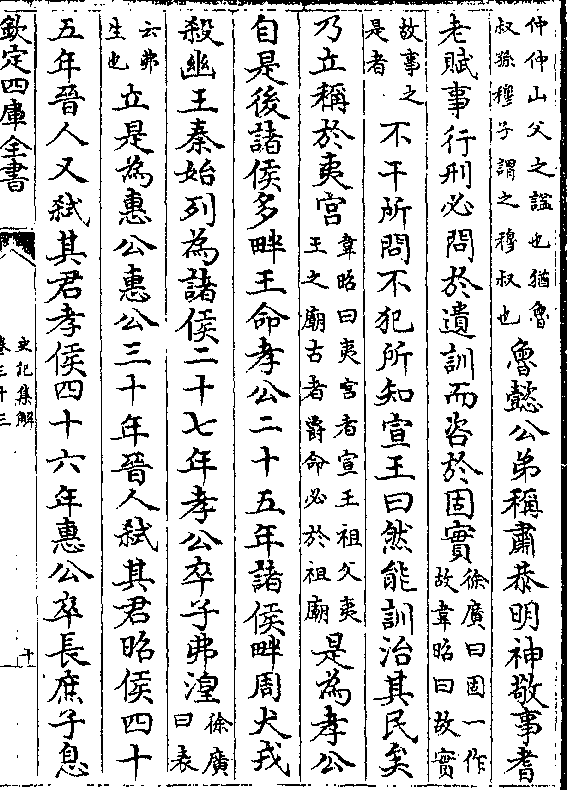 仲仲山父之諡也猶魯叔孫穆子謂之穆叔也魯懿公弟稱肅恭明神敬事耆
老賦事行刑必問於遺訓而咨於固實徐廣曰固一作故韋昭曰故實
故事之是者不干所問不犯所知宣王曰然能訓治其民矣
乃立稱於夷宮韋昭曰夷宮者宣王祖父夷王之廟古者爵命必於祖廟是為孝公
自是後諸侯多畔王命孝公二十五年諸侯畔周犬戎
殺幽王秦始列為諸侯二十七年孝公卒子弗湟徐廣曰表
云弗生也立是為惠公惠公三十年晉人弑其君昭侯四十
五年晉人又弑其君孝侯四十六年惠公卒長庶子息
欽定四庫全書
史記集解
卷三十三
十